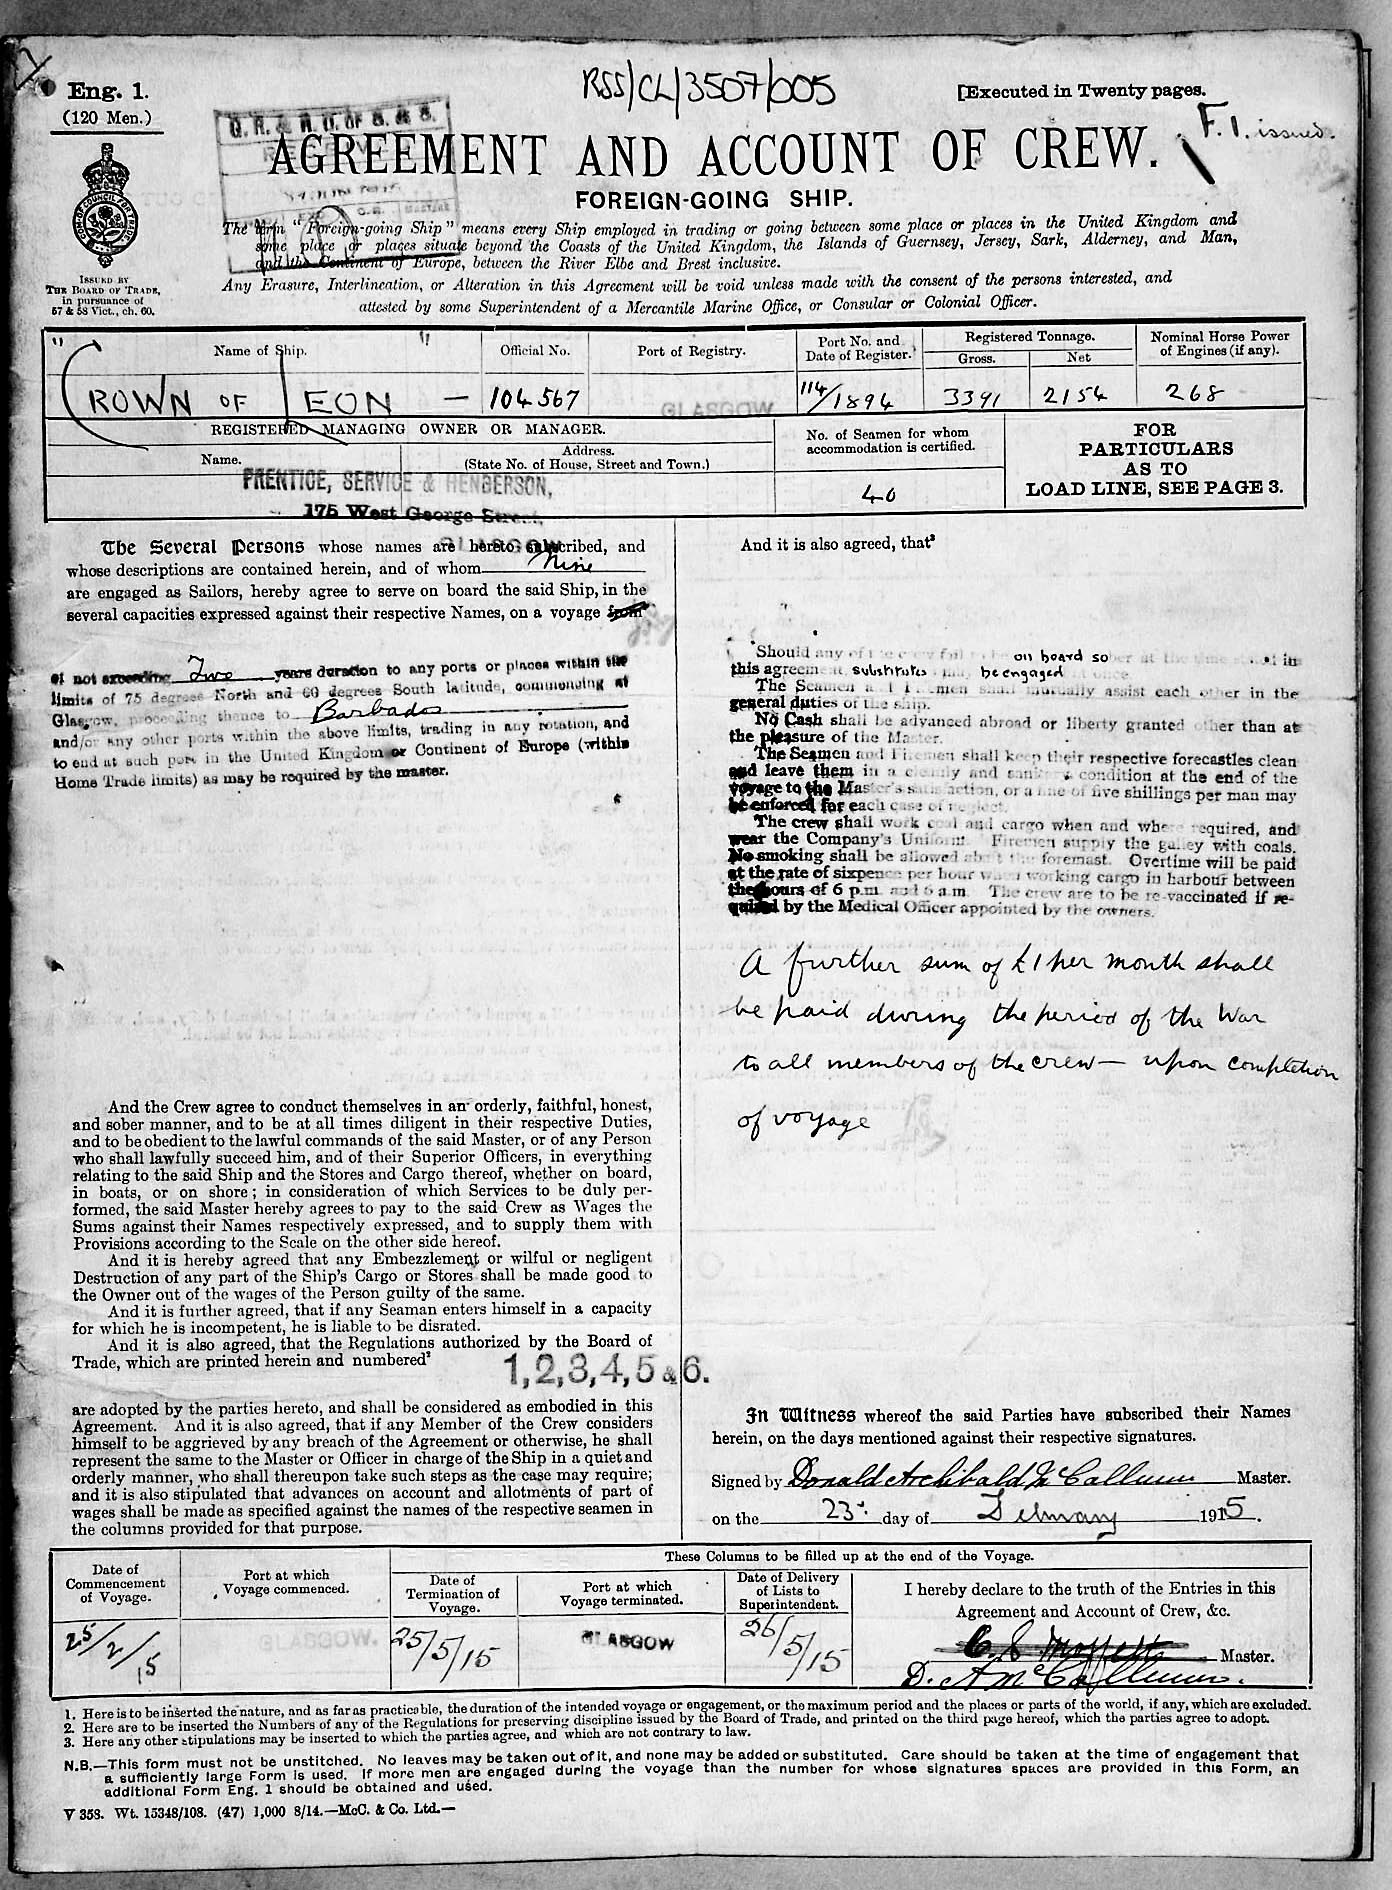 RSS/CL/3507/005
Eng. 1.
(120 Men.)
[Executed in Twenty pages.
F. 1. issued.
G. R. & R. O. OF S. & S.
AGREEMENT AND ACCOUNT OF CREW.
FOREIGN-GOING SHIP.
The term "Foreign-going Ship" means every Ship employed in trading or going between some place or places in the United Kingdom and
some place or places situate beyond the Coasts of the United Kingdom, the Islands of Guernsey, Jersey, Sark, Alderney, and Man,
and the Continent of Europe, between the River Elbe and Brest inclusive.
Any Erasure, Interlineation, or Alteration in this Agreement will be void unless made with the consent of the persons interested, and
attested by some Superintendent of a Mercantile Marine Office, or Consular or Colonial Officer.
ISSUED BY
THE BOARD OF TRADE,
in pursuance of
57 & 58 Vict., ch. 60.
Name of Ship.
Official No.
Port of Registry.
Port No. and
Date of Register.
Registered Tonnage.
Gross.
Net
Nominal Horse Power
of Engines (if any).
"CROWN OF LEON" —
104567
GLASGOW
114/1894
3391
2154
268
REGISTERED MANAGING OWNER OR MANAGER.
Name.
Address.
(State No. of House, Street and Town.)
No. of Seamen for whom
accommodation is certified.
FOR
PARTICULARS
AS TO
LOAD LINE, SEE PAGE 3.
PRENTICE, SERVICE & HENDERSON,
175 West George Street,
GLASGOW
40
The Several Persons whose names are hereto subscribed, and
whose descriptions are contained herein, and of whom Nine
are engaged as Sailors, hereby agree to serve on board the said Ship, in the
several capacities expressed against their respective Names, on a voyage from
of not exceeding Two years duration to any ports or places within the
limits of 75 degrees North and 60 degrees South latitude, commencing at
Glasgow, proceeding thence to Barbados
and/or any other ports within the above limits, trading in any rotation, and
to end at such port in the United Kingdom or Continent of Europe (within
Home Trade limits) as may be required by the master.
And the Crew agree to conduct themselves in an orderly, faithful, honest,
and sober manner, and to be at all times diligent in their respective Duties,
and to be obedient to the lawful commands of the said Master, or of any Person
who shall lawfully succeed him, and of their Superior Officers, in everything
relating to the said Ship and the Stores and Cargo thereof, whether on board,
in boats, or on shore; in consideration of which Services to be duly per-
formed, the said Master hereby agrees to pay to the said Crew as Wages the
Sums against their Names respectively expressed, and to supply them with
Provisions according to the Scale on the other side hereof.
And it is hereby agreed that any Embezzlement or wilful or negligent
Destruction of any part of the Ship's Cargo or Stores shall be made good to
the Owner out of the wages of the Person guilty of the same.
And it is further agreed, that if any Seaman enters himself in a capacity
for which he is incompetent, he is liable to be disrated.
And it is also agreed, that the Regulations authorized by the Board of
Trade, which are printed herein and numbered²
1,2,3,4,5 & 6.
are adopted by the parties hereto, and shall be considered as embodied in this
Agreement. And it is also agreed, that if any Member of the Crew considers
himself to be aggrieved by any breach of the Agreement or otherwise, he shall
represent the same to the Master or Officer in charge of the Ship in a quiet and
orderly manner, who shall thereupon take such steps as the case may require;
and it is also stipulated that advances on account and allotments of part of
wages shall be made as specified against the names of the respective seamen in
the columns provided for that purpose.
And it is also agreed, that³
Should any of the crew fail to be on board sober at the time stated in
this agreement, substitutes may be engaged at once.
The Seamen and Firemen shall mutually assist each other in the
general duties of the ship.
No Cash shall be advanced abroad or liberty granted other than at
the pleasure of the Master.
The Seamen and Firemen shall keep their respective forecastles clean
and leave them in a cleanly and sanitary condition at the end of the
voyage to the Master's satisfaction, or a fine of five shillings per man may
be enforced for each case of neglect.
The crew shall work coal and cargo when and where required, and
wear the Company's Uniform. Firemen supply the galley with coals.
No smoking shall be allowed abaft the foremast. Overtime will be paid
at the rate of sixpence per hour when working cargo in harbour between
the hours of 6 p.m. and 6 a.m. The crew are to be re-vaccinated if re-
quired by the Medical Officer appointed by the owners.
A further sum of £1 per month shall
be paid during the period of the War
to all members of the crew — upon completion
of voyage
In Witness whereof the said Parties have subscribed their Names
herein, on the days mentioned against their respective signatures.
Signed by Donald Archibald McCallum Master.
on the 23rd day of February 1915.
Date of
Commencement
of Voyage.
Port at which
Voyage commenced.
These Columns to be filled up at the end of the Voyage.
Date of
Termination of
Voyage.
Port at which
Voyage terminated.
Date of Delivery
of Lists to
Superintendent.
I hereby declare to the truth of the Entries in this
Agreement and Account of Crew, &c.
25/2/15
GLASGOW.
25/5/15
GLASGOW
26/5/15
Master.
D. A McCallum.
1. Here is to be inserted the nature, and as far as practicable, the duration of the intended voyage or engagement, or the maximum period and the places or parts of the world, if any, which are excluded.
2. Here are to be inserted the Numbers of any of the Regulations for preserving discipline issued by the Board of Trade, and printed on the third page hereof, which the parties agree to adopt.
3. Here any other stipulations may be inserted to which the parties agree, and which are not contrary to law.
N.B.—This form must not be unstitched. No leaves may be taken out of it, and none may be added or substituted. Care should be taken at the time of engagement that
a sufficiently large Form is used. If more men are engaged during the voyage than the number for whose signatures spaces are provided in this Form, an
additional Form Eng. 1 should be obtained and used.
V 358. Wt. 15348/108. (47) 1,000 8/14.—McC. & Co. Ltd.—